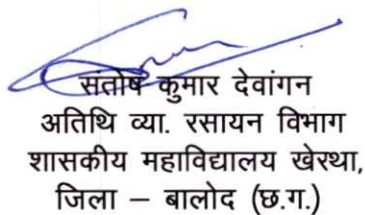 संतोष कुमार देवांगन
अतिथि व्या. रसायन विभाग
शासकीय महाविद्यालय खेरथा,
जिला – बालोद (छ.ग.)